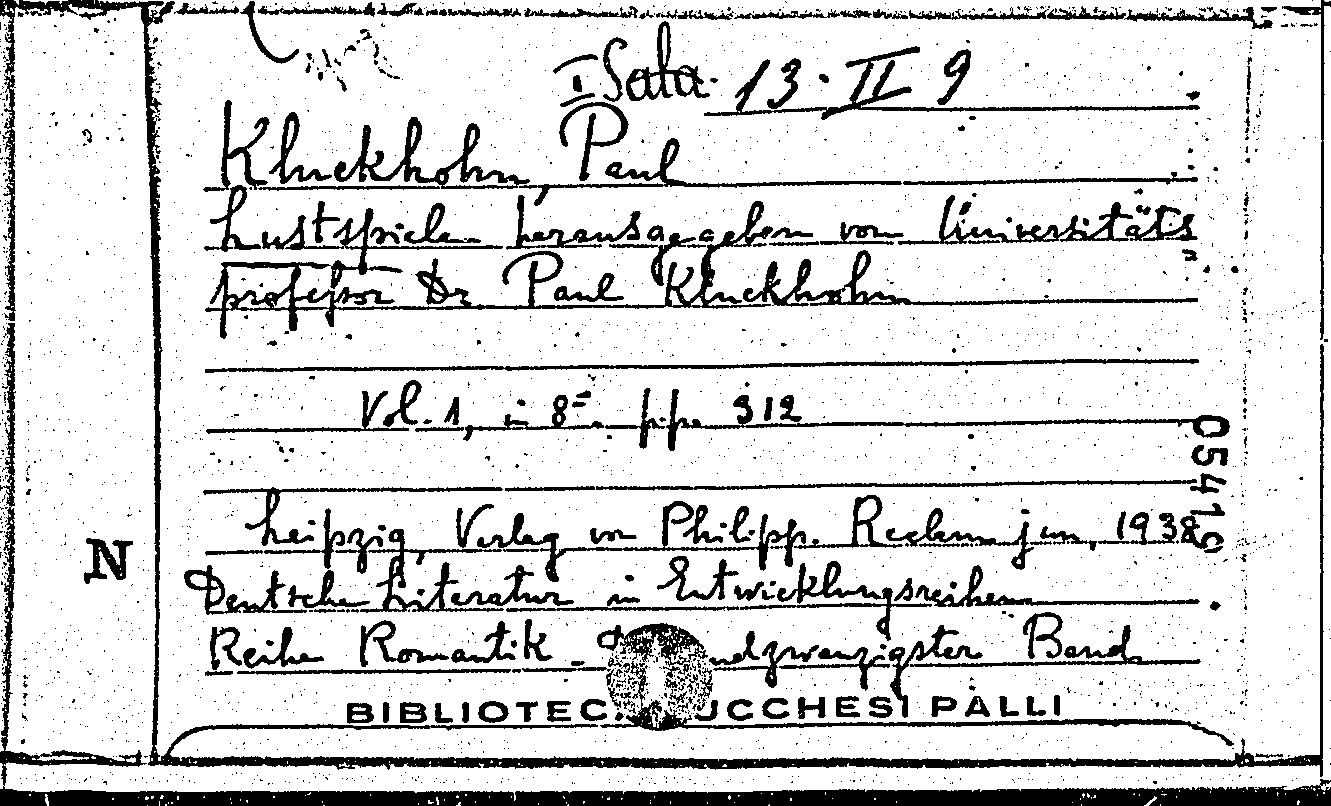 I Sala. 13. II 9
Kluckhohn, Paul
Lustspiele herausgegeben von Universitäts
professor Dr. Paul Kluckhohn
Vol. 1, in 8° pp. 312
Leipzig, Verlag von Philipp. Reclam jun, 1938
Deutsche Literatur in Entwicklungsreihen
Reihe Romantik - ndzwanzigster Band
BIBLIOTEC UCCHESI PALLI
N
05419